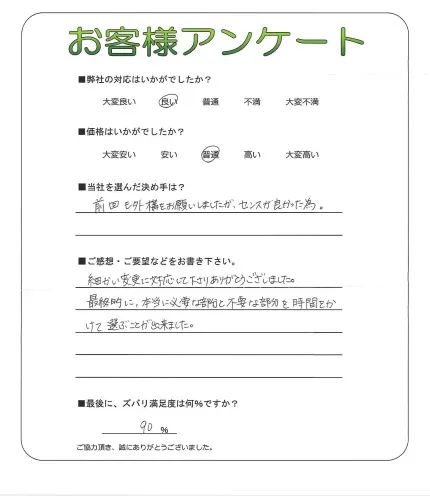 お客様アンケート
■弊社の対応はいかがでしたか？
大変良い 良い 普通 不満 大変不満
■価格はいかがでしたか？
大変安い 安い 普通 高い 大変高い
■当社を選んだ決め手は？
前回も外構をお願いしましたが、センスが良かった為。
■ご感想・ご要望などをお書き下さい。
細かい変更に対応して下さりありがとうございました。
最終的に、本当に必要な部分と不要な部分を時間をか
けて選ぶことが出来ました。
■最後に、ズバリ満足度は何％ですか？
90 %
ご協力頂き、誠にありがとうございました。